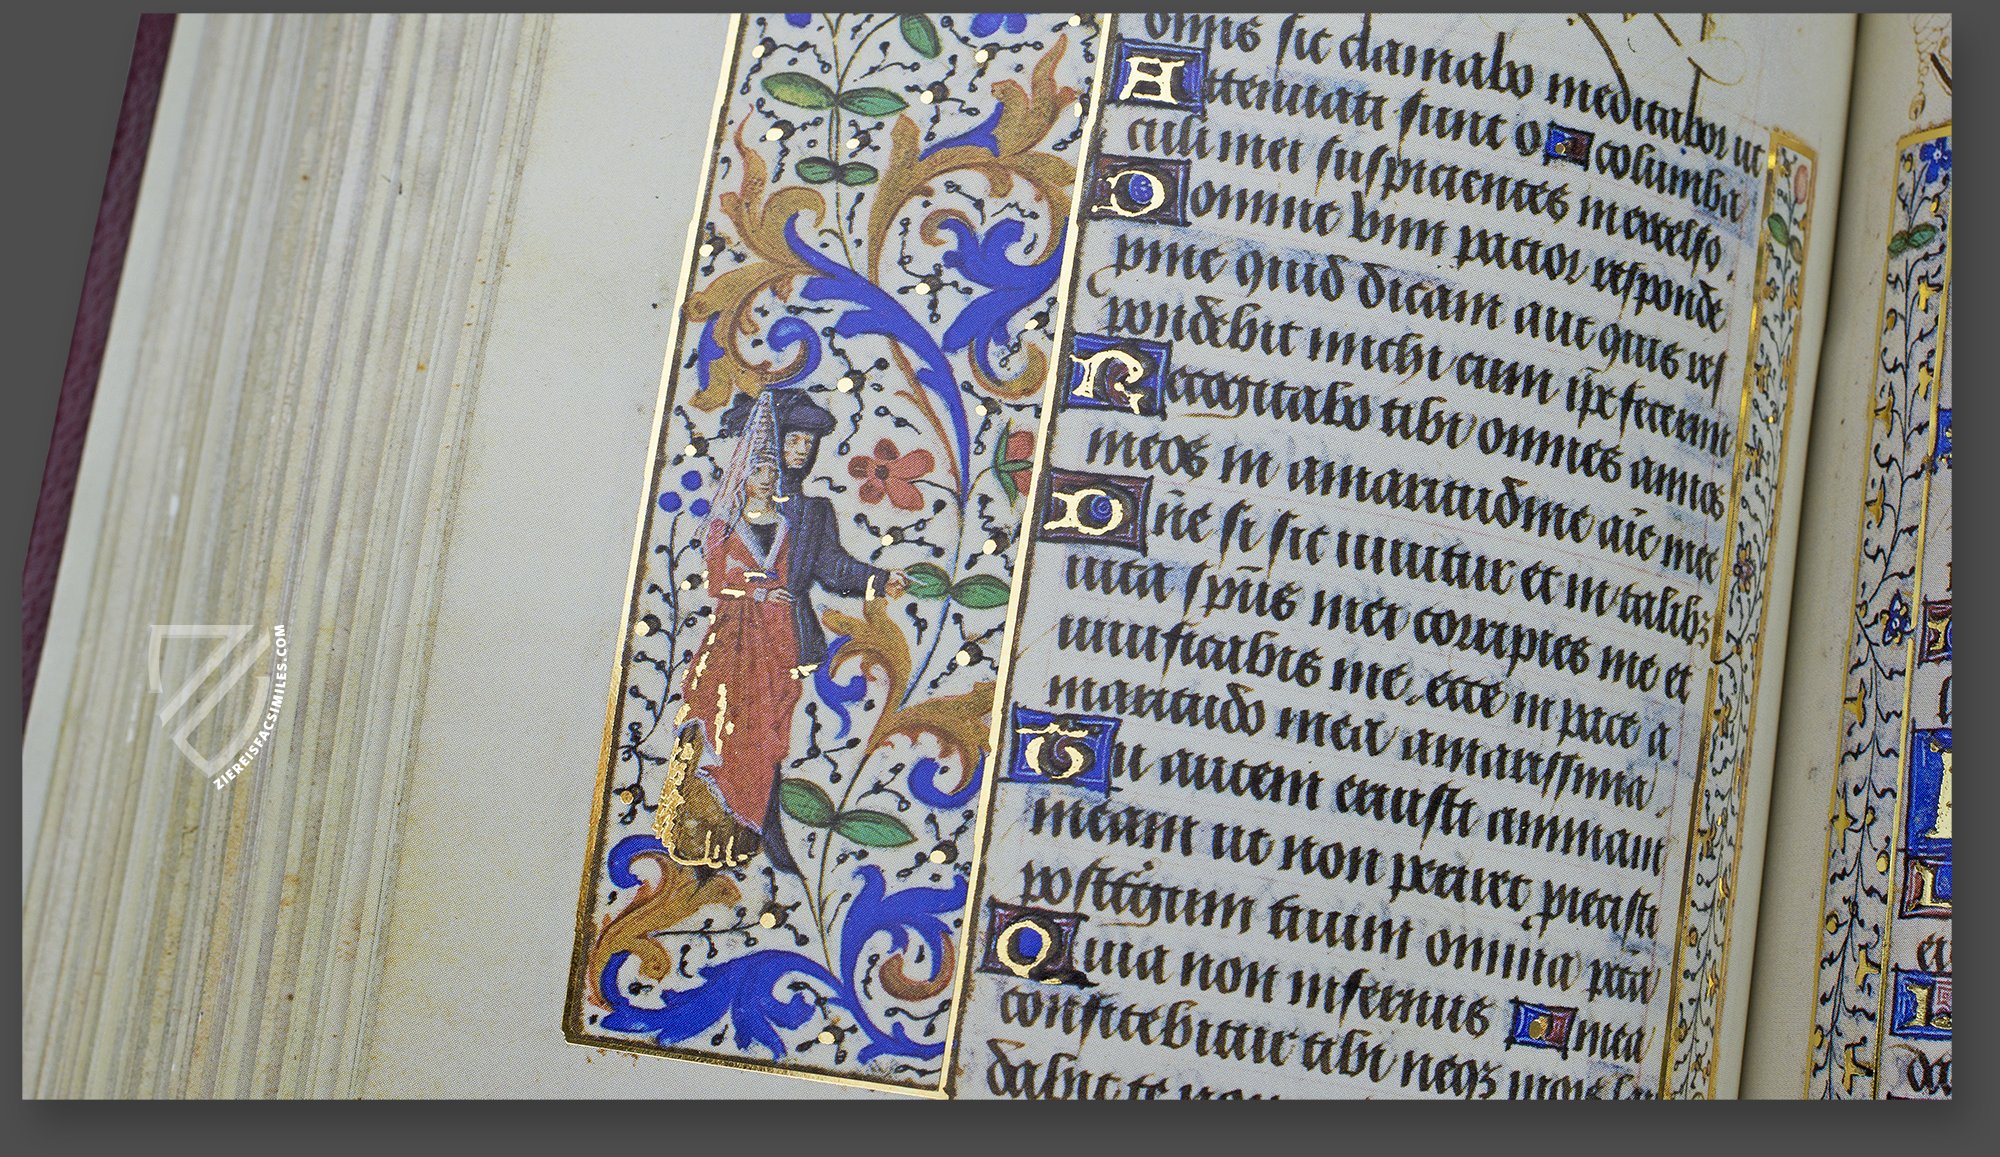 omnis sic clamabo meditabor ut
Attenuati sunt o columba
culi mei suspicientes in excelso.
Domine vim patior responde
pme quid dicam aut quis res
pondebit michi cum ipse fecerim
Recogitabo tibi omnes annos
meos in amaritudine aīe mee
Dn̄e si sic vivitur et in talibꝫ
vita sp̄us mei corripies me et
vivificabis me, ecce in pace a
maritudo mea amarissima
Tu autem eruisti animam
meam ut non periret proiecisti
post tergum tuum omnia pctā
Quia non infernus mea
confitebitur tibi neqꝫ mors
dabit te non
ZIEREISFACSIMILES.COM